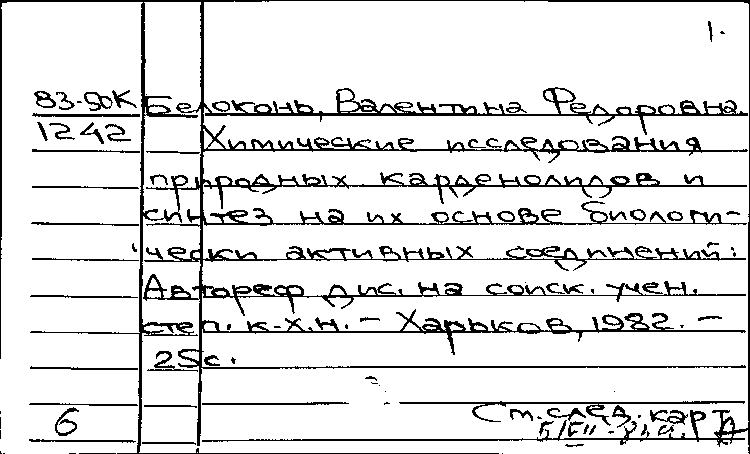 1.
83-50К Белоконь, Валентина Федоровна.
1242 Химические исследования
природных карденолидов и
синтез на их основе биологи-
чески активных соединений:
Автореф. дис. на соиск. учен.
степ. к-х.н. – Харьков, 1982. –
25с.
6 См. след. карт.